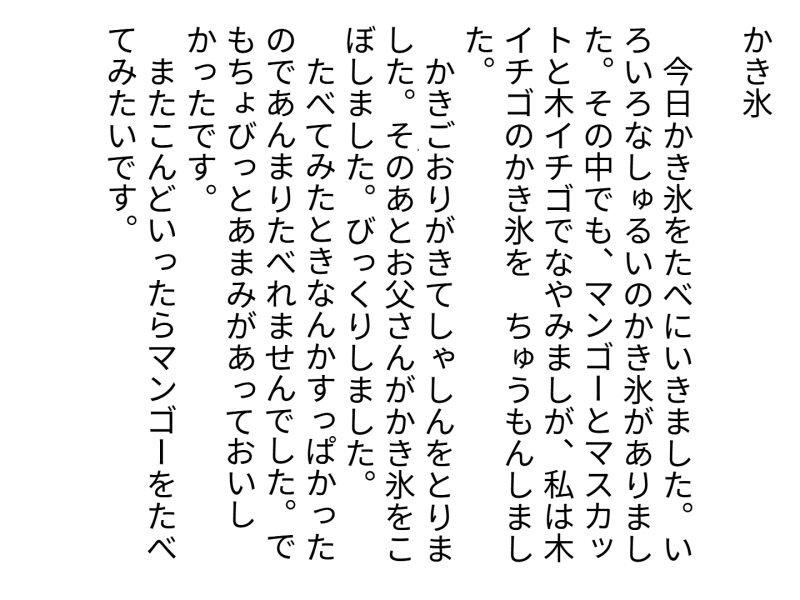 かき氷
　今日かき氷をたべにいきました。い
ろいろなしゅるいのかき氷がありまし
た。その中でも、マンゴーとマスカッ
トと木イチゴでなやみましが、私は木
イチゴのかき氷を　ちゅうもんしまし
た。
　かきごおりがきてしゃしんをとりま
した。そのあとお父さんがかき氷をこ
ぼしました。びっくりしました。
　たべてみたときなんかすっぱかった
のであんまりたべれませんでした。で
もちょびっとあまみがあっておいし
かったです。
　またこんどいったらマンゴーをたべ
てみたいです。